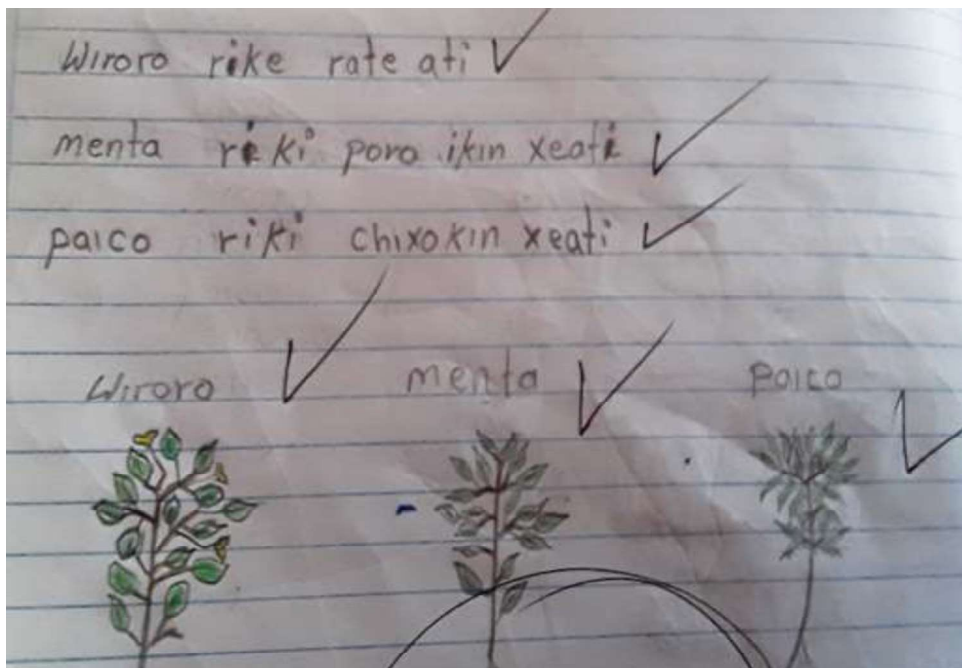 Wiroro rike rate ati
menta riki poro ikin xeati
paico riki chixokin xeati
Wiroro menta paico